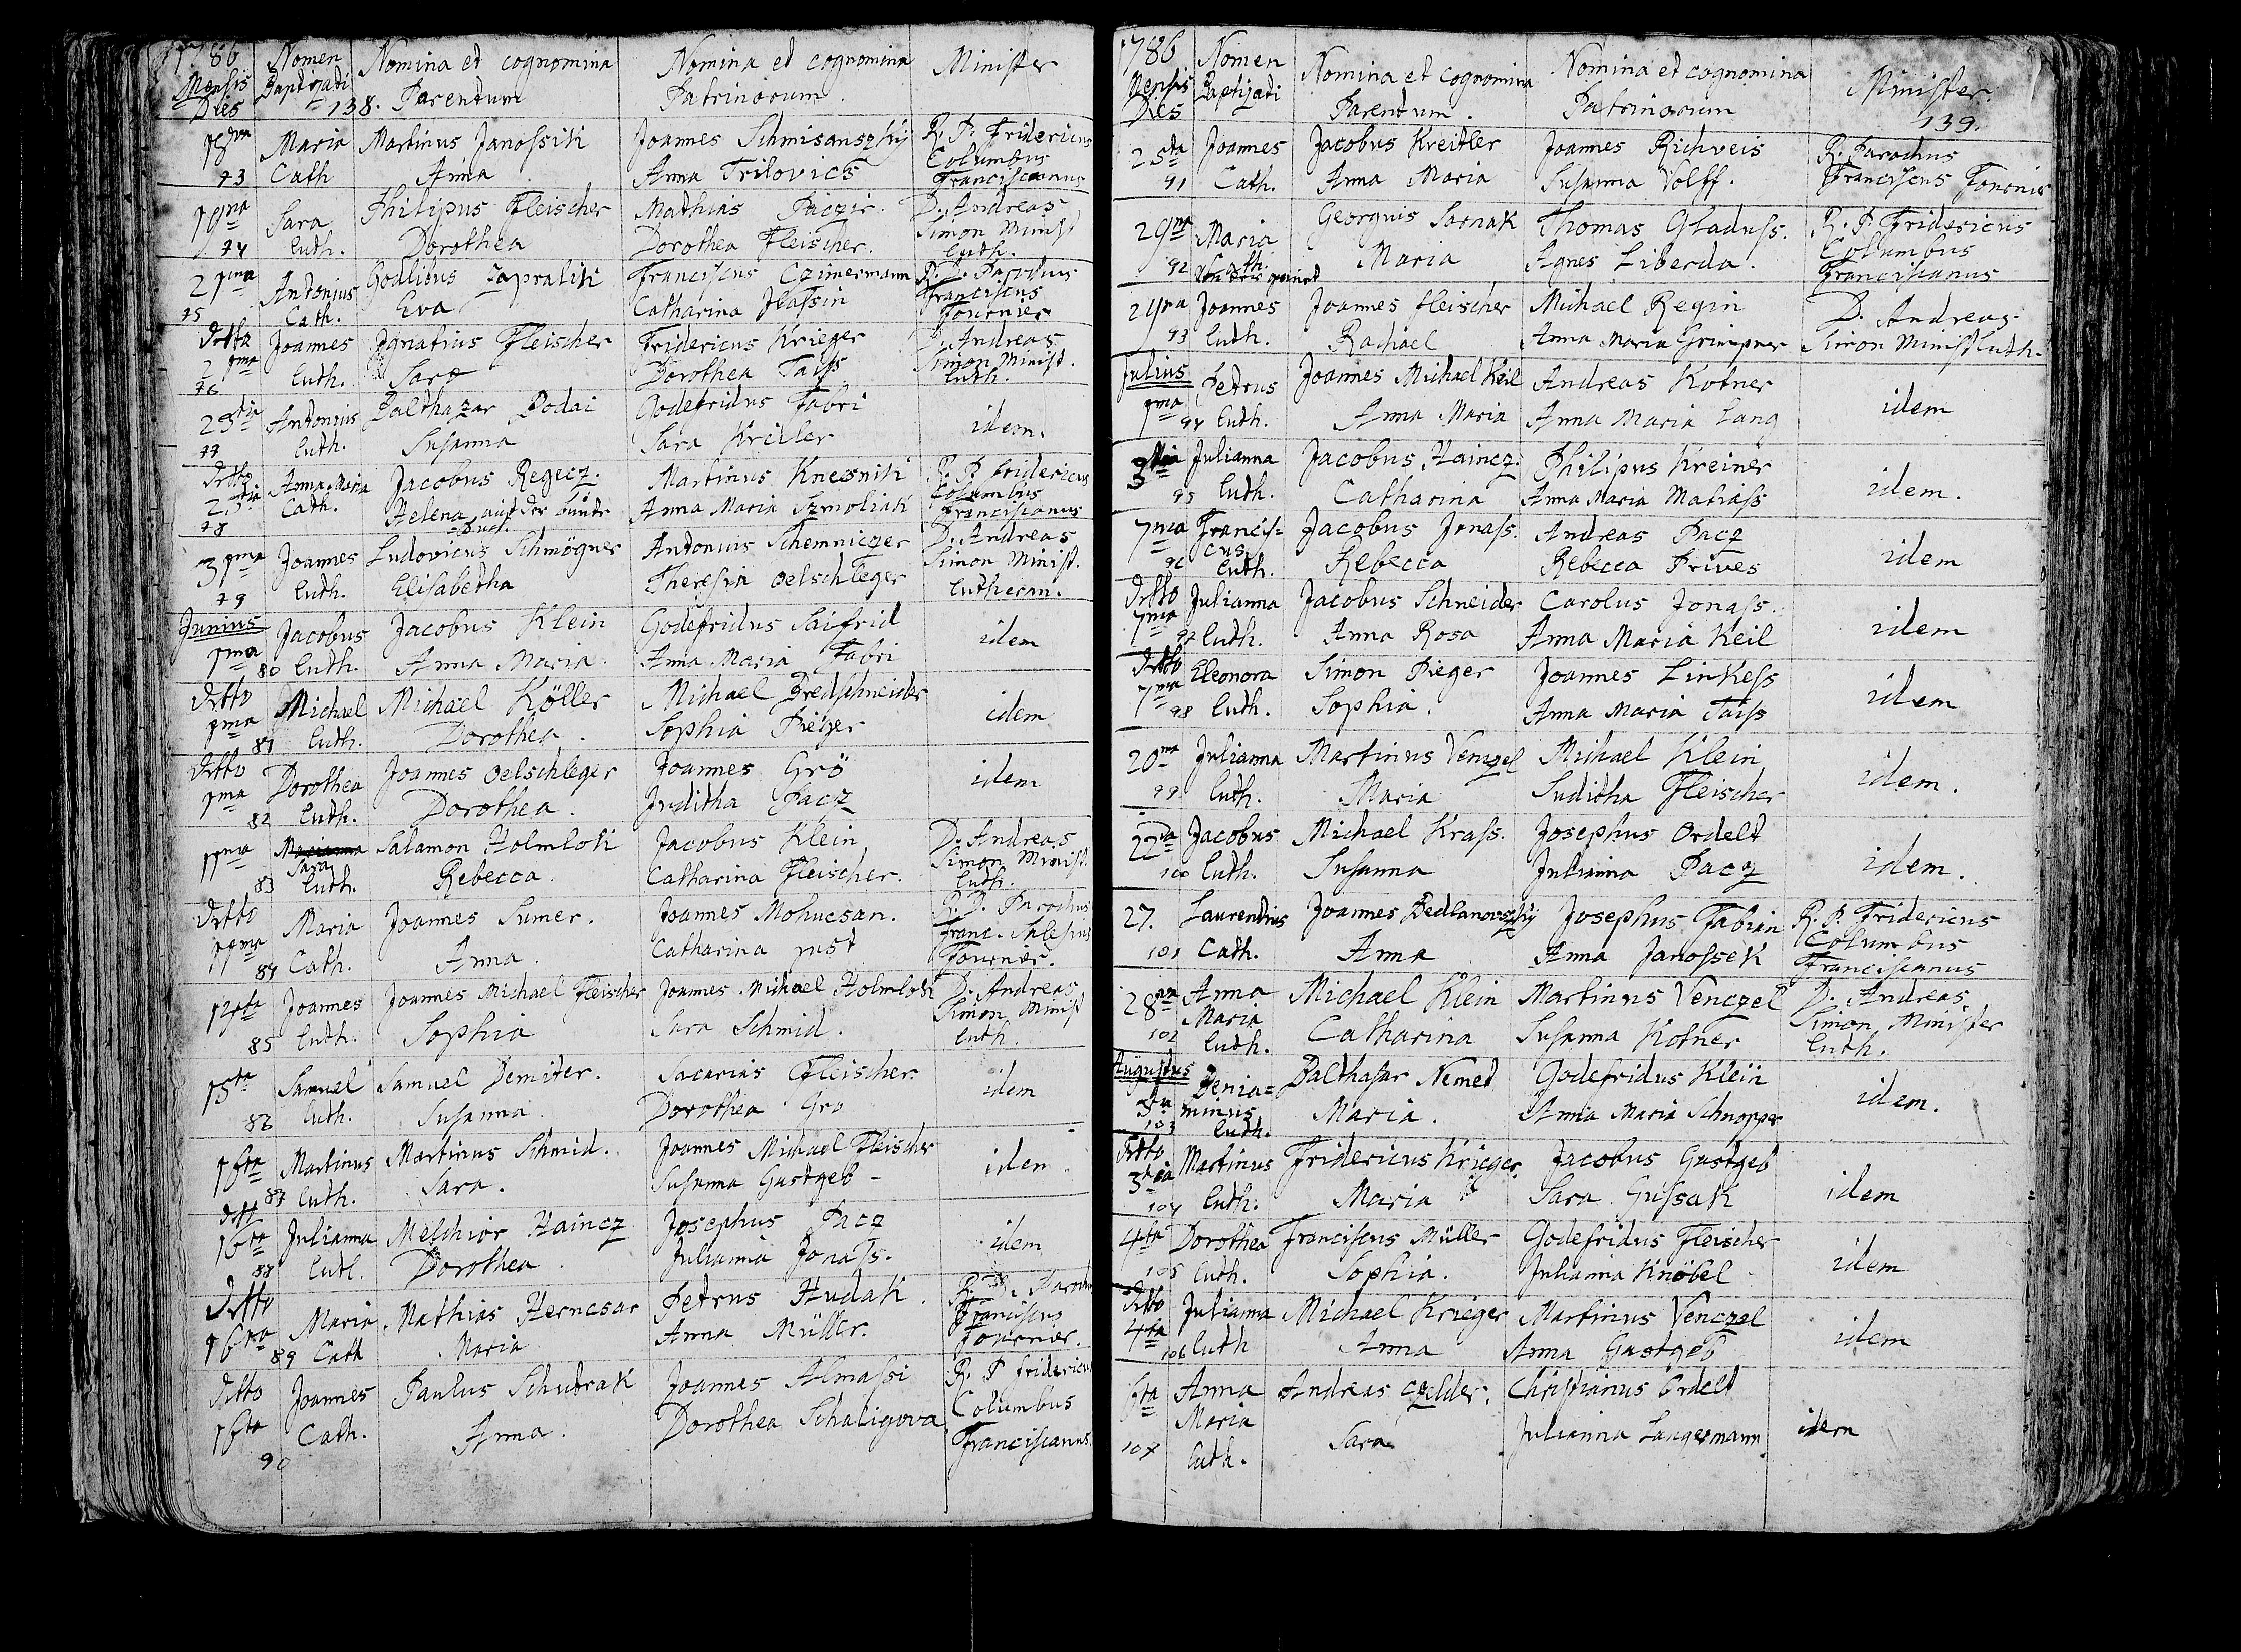 1786 Nomen Nomina et cognomina Nomina et cognomina Minister
Mensis Baptizati Parentum Patrinorum
Dies 138.
18va Maria Martinus Janossik Joannes Schmisanszkÿ R. P. Fridericus
73 Cath Anna Anna Trilovics Columbus
Franciscanus
19na Sara Philipus Fleischer Mathias Paczir D. Andreas
74 Luth. Dorothea Dorothea Fleischer. Simon Minist
Luth.
21ma Antonius Godlibus Zapralik Franciscus Czimermann R. D. Parochus
75 Cath. Eva Catharina Hassin Franciscus
Fournier
Ditto Joannes Ignatius Fleischer Fridericus Krieger D. Andreas
21ma Luth. Sara Dorothea Taiss Simon Minist.
76 Luth.
23tia Antonius Balthazar Bodai Godefridus Fabri idem.
77 Luth. Susanna Sara Kreller
Ditto Anna Maria Jacobus Regecz. Martinus Knesnik R. P. Fridericus
23tia Cath. Helena auf der Anna Maria Szmoliak Columbus
78 Franciscanus
31ma Joannes Ludovicus Schmögner Antonius Schemniczer D. Andreas
79 Luth. Elisabetha Theresia Oelschleger Simon Minist.
Lutheran.
Junius Jacobus Jacobus Klein Godefridus Saifrid idem
1ma
80 Luth. Anna Maria Anna Maria Fabri
Ditto Michael Michael Köller Michael Bredschneider idem
1ma
81 Luth. Dorothea. Sophia Pieger
Ditto Dorothea Joannes Oelschleger Joannes Grö idem
1ma
82 Luth. Dorothea. Juditha Pacz
11ma Sara Salamon Holmlok Jacobus Klein D. Andreas
83 Luth. Rebecca. Catharina Fleischer. Simon Minist.
Luth.
Ditto Maria Joannes Sumer. Joannes Mohucsan. R. D. Parochus
11ma
84 Cath. Anna. Catharina Fournier.
Joannes Joannes Michael Fleischer Joannes Michael Holmlok D. Andreas
85 Luth. Sophia Sara Schmid. Simon Minist
Luth.
15ta Samuel Samuel Demiter. Sacarias Fleischer. idem
86 Luth. Susanna. Dorothea Gro
16ta Martinus Martinus Schmid. Joannes Michael Fleischer idem.
87 Luth. Sara. Susanna Gastgeb
Ditt
16ta Julianna Melchior Haincz Josephus Pacz idem
88 Luth. Dorothea. Julianna Jonass.
Ditto Maria Mathias Herncsar Petrus Hudak R. D. Parochus
16ta Franciscus
89 Cath Maria Anna Müller. Fournier.
Ditto Joannes Paulus Schutrak Joannes Almassi R. P Fridericus
16ta Cath. Anna. Dorothea Schaligova Columbus
90 Franciscanus.
1786 Nomen Nomina et cognomina Nomina et cognomina Minister.
Mensis Baptizati Parentum. Patrinorum
Dies 139.
25ta Joannes Jacobus Kreitler Joannes Richveis R. Parochus
91 Cath. Anna Maria Susanna Volff. Franciscus
29na Maria Georgius Sarnak Thomas Gladuss. R. P. Fridericus
92 Cath. Maria Agnes Liberda. Columbus
Franciscanus
29na Joannes Joannes Fleischer Michael Regin D. Andreas
93 Luth. Rachael Anna Maria Grimpner Simon Minist Luth.
Julius Petrus Joannes Michael Keil Andreas Kotner idem
1ma
94 Luth. Anna Maria Anna Maria Lang
3tia Julianna Jacobus Haincz. Philipus Kreiner idem.
95 Luth. Catharina Anna Maria Matiass
7ma Francis= Jacobus Jonass. Andreas Pacz idem
cus
96 Luth. Rebecca Rebecca Prives
Ditto Julianna Jacobus Schneider Carolus Jonass. idem
7ma
97 Luth. Anna Rosa Anna Maria Keil
Ditto Eleonora Simon Pieger Joannes Linkess idem
7ma
98 Luth. Sophia. Anna Maria Taiss
20ma Julianna Martinus Venczel Michael Klein idem.
99 Luth. Maria Juditha Fleischer
22da Jacobus Michael Krass. Josephus Ordelt idem.
100 Luth. Susanna Julianna Pacz
27. Laurentius Joannes Bedlanovszkÿ Josephus Fabian R. P. Fridericus
101 Cath. Anna Anna Janossek Columbus
Franciscanus
28va Anna Michael Klein Martinus Venczel D. Andreas
Maria Simon Minister
102 Luth. Catharina Susanna Kotner Luth.
Augustus Benia= Balthasar Nemet Godefridus Klein idem.
3a minus Maria. Anna Maria Schnopper
103 Luth.
Ditto Martinus Fridericus Krieger Jacobus Gastgeb idem
3tia
104 Luth. Maria Sara Gussak
4ta Dorothea Franciscus Müller Godefridus Fleischer idem
105 Luth. Sophia. Julianna Knöbel
Ditto Julianna Michael Krieger Martinus Venczel idem
4ta
106 Luth Anna Anna Gastgeb
6ta Anna Andreas Czelder. Christianus Ordelt idem
Maria
107 Luth. Sara Julianna Langermann